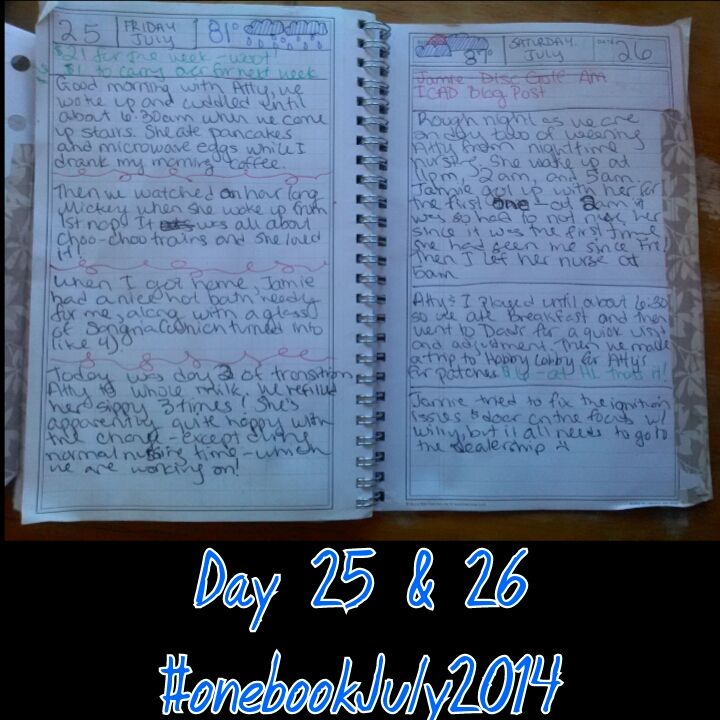 25 FRIDAY JULY 81°
$21 for the week - woot!
$1 to carry over for next week
Good morning with Atty, we
woke up and cuddled until
about 6:30am when we came
up stairs. She ate pancakes
and microwave eggs while I
drank my morning coffee.
Then we watched an hour long
Mickey when she woke up from
1st nap! It was all about
choo-choo trains and she loved
it!
When I got home, Jamie
had a nice hot bath ready
for me, along with a glass
of Sangria (which turned into
like 4).
Today was day 3 of transition
Atty to whole milk. We refilled
her sippy 3 times! She's
apparently quite happy with
the change - except during
normal nursing time - which
we are working on!
87° SATURDAY JULY DATE 26
Jamie - Disc Golf Am
ICAD Blog Post
Rough night as we are
on day two of weening
Atty from nighttime
nursing. She woke up at
11pm, 2am, and 5am.
Jamie got up with her for
the first one - at 2am it
was so hard to not nurse her
since it was the first time
she had seen me since Fri!
Then I let her nurse at
5am.
Atty & I played until about 6:30
so we ate breakfast and then
went to Dad's for a quick visit
and adjustment. Then we made
a trip to Hobby Lobby for Atty's
for patches $16 - at HL that's it!
Jamie tried to fix the ignition
issues & door on the focus w/
Willy, but it all needs to go to
the dealership :(
Day 25 & 26
#onebookJuly2014